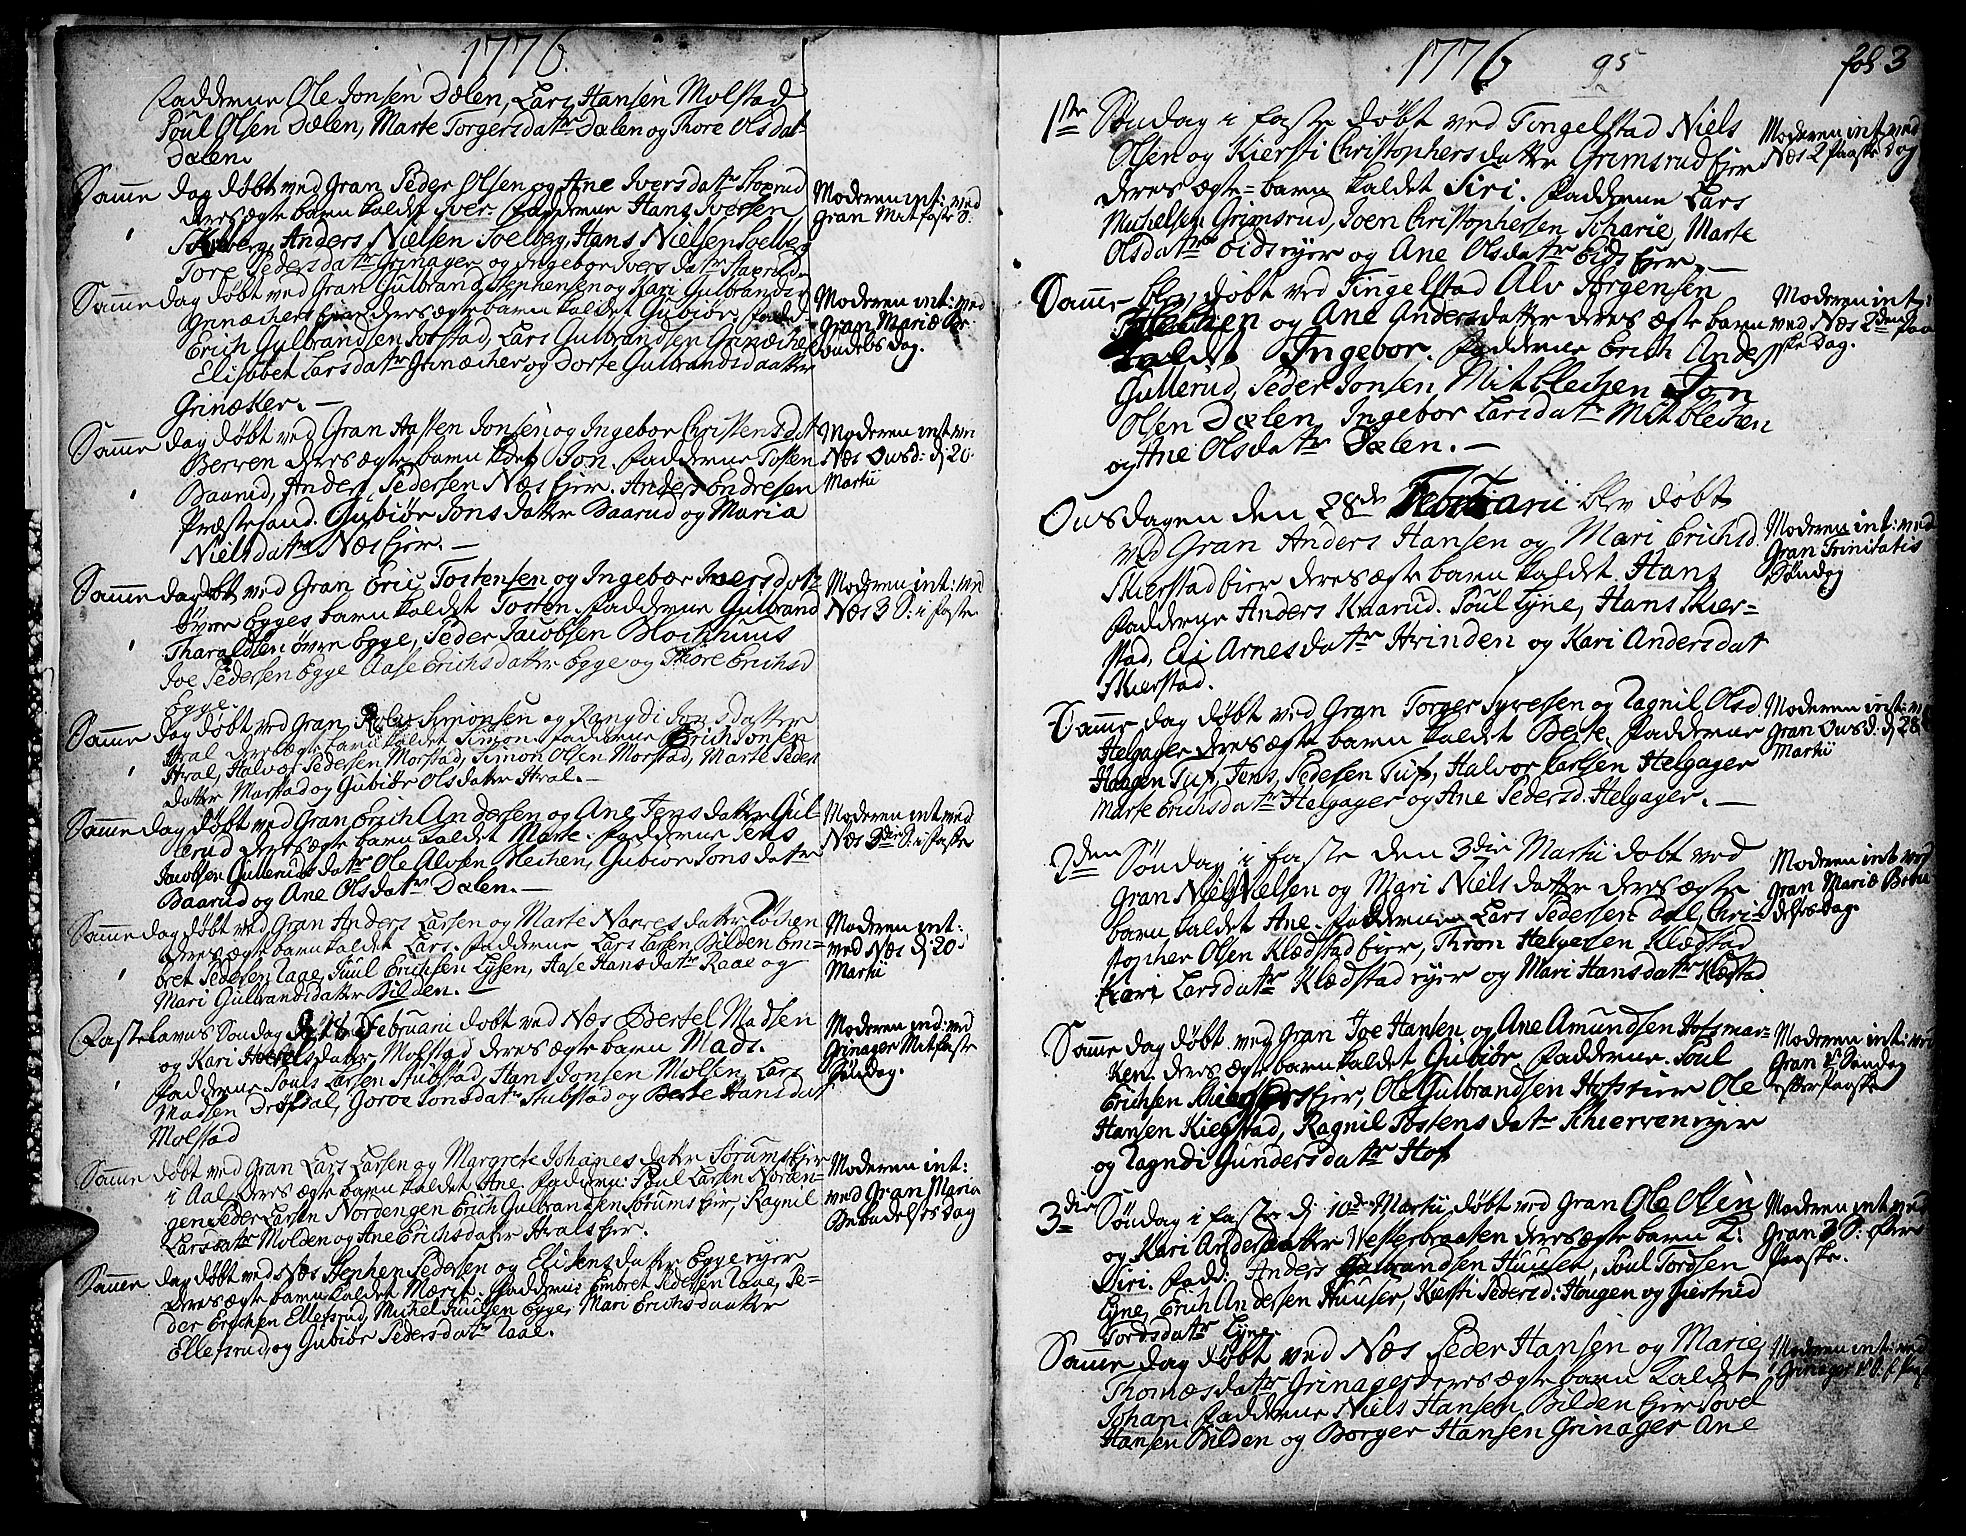 1776.
Fadderne Ole Jonsen Dælen, Lars Hansen Molstad
Poul Olsen Dælen, Marte Torgersdatr Dalen og Thore Olsdat
Dalen.
Samme dag døbt ved Gran Peder Olsen og Ane Iversdatr
deres ægte barn kaldet Iver. Fadderne Hans Iversen
Anders Nielsen Soelberg, Hans Nielsen Soelberg
Tore Pedersdatr Grinager og Ingebor Iversdatr
Samme dag døbt ved Gran Gulbrand Stephensen og Kari Gulbrandsd
deres ægte barn kaldet Gubiør. Fadd:
Erich Gulbrandsen Lars Gulbrandsen Grinæcher
Elisabet Larsdatr Grinæcher og Dorte Gulbrandsdaatter
Grinæker. —
Samme dag døbt ved Gran Aasten Jonsen og Ingebor Christensdat
Berven deres ægte barn kldet Jon. Fadderne Tosten
Baarud, Anders Pedersen Næs Eier. Anders Endresen
Præstesand. Gubiør Jonsdatter Baarud og Maria
Nielsdatr Næs Eier. —
Samme dag døbt ved Gran Eric Tostensen og Ingebor Iversdatr
øvre Egges barn kaldet Tosten. Fadderne Gulbrand
Tharaldsen øvre Egge, Peder Jacobsen Blockhuus
Joe Pedersen Egge Aase Erichsdatter Egge og Thore Erichsd
Egge.
Samme dag døbt ved Gran Simonsen og Rangdi Jonsdatter
Hval deres ægte barn kaldet Simon. Fadderne Erich Jonsen
Hval, Halvor Pedersen Morstad, Simon Olsen Morstad, Marte Peders
datter Morstad og Gubiør Olsdatter Hval. —
Samme dag døbt ved Gran Erich Andersen og Ane Jensdatter Gul-
lerud deres ægte barn kaldet Marte. Fadderne Jens
Jacobsen Gullerud Ole Alvsen Gubiør Jonsdatr
Baarud og Ane Olsdatr Dælen. —
Samme dag døbt ved Gran Anders Larsen og Marte
deres ægte barn kaldet Lars. Fadderne Lars Larsen Bilden Em-
bret Pedersen Raae, Poul Erichsen Lysen, Aase Hansdatr Raae og
Mari Gulbrandsdatter Bilden. —
Fastelavns Søndag d. 18 Februarii døbt ved Næs Bertel Madsen
og Kari datter Molstad deres ægte barn Mads.
Fadderne Pouls Larsen Stubstad, Hans Jonsen Molsen, Lars
Madsen Drøfdal, Goroe Jonsdatr Stubstad og Berte Hansdat
Molstad
Samme døbt ved Gran Lars Larsen og Margrete Johanesdatter Sørums Eier
i Aal deres ægte barn kaldet Ane. Fadderne: Poul Larsen Norden-
gen Peder Larsen Nordengen Erich Gulbrandsen Sørums Eier, Ragnil
Larsdatr Molden og Ane Erichsdatter Hvals Eier.
Samme dag døbt ved Næs Stephen Pedersen og Eli Jensdatter Egge eyer
deres ægte barn kaldet Marit. Fadderne: Embret Pedersen Raae, Pe-
der Erichsen Ellefsrud, Michel Egge, Mari Erichsdaatter
Ellefsrud og Gubiør Pedersdatr Raae.
Moderen int: ved
Gran Mitfaste S:
Moderen int: ved
Gran Mariæ Be-
budels Dag.
Moderen int: ved
Næs Onsd: d: 20
Martii
Moderen int: ved
Næs 3 S: i faste
Moderen int: ved
Næs 3die S: i Faste
Moderen int:
ved Næs d: 20
Martii
Moderen ind: ved
Grinager Mitfaste
Søndag.
Moderen int:
ved Gran Maria
Bebudelses Dag
1776 95 fol 3
1ste Søndag i faste døbt ved Tingelstad Niels
Olsen og Kiersti Christophersdatter Grimsrud Eier
deres ægte-barn kaldet Siri. Fadderne Lars
Michelsen Grimsrud, Joen Christophersen Marte
Olsdatr Eidseyer og Ane Olsdatr Eids Eier. —
Samme blev døbt ved Tingelstad Alv Jørgensen
og Ane Andersdatter deres ægte barn
kaldet Ingebor. Fadderne Erich Anders
Gullerud, Peder Jonsen, Jon
Olsen Dælen, Ingebor Larsdatr
og Ane Olsdatr Dælen. —
Onsdagen den 28de Februarii blev døbt
ved Gran Anders Hansen og Mari Erichsd
Skierstad eier deres ægte barn kaldet Hans
Fadderne Anders Kaarud. Poul Lyne, Hans Skier-
stad, Eli Arnesdatr Hvinden og Kari Andersdat
Skierstad.
Samme dag døbt ved Gran Torger Syversen og Ragnil Olsd
Helgager deres ægte barn kaldet Berte. Fadderne
Haagen Tuf, Jens Pedersen Tuf, Halvor Larsen Helgager
Marte Erichsdatr Helgager og Ane Pedersd. Helgager. —
2den Søndag i faste den 3die Martii døbt ved
Gran Niels Nielsen og Mari Nielsdatter deres ægte
barn kaldet Ane. Fadderne Lars Pedersen Dal, Chri-
stopher Olsen Klædstad Eier, Thron Helgesen Klædstad
Kari Larsdatr Klædstad eyer og Mari Hansdatr Klædstad
Samme dag døbt ved Gran Joe Hansen og Ane Amundsen Hofsmar-
ken. deres ægte barn kaldet Gubiør Fadderne Poul
Erichsen Eier, Ole Gulbrandsen Hofs eier Ole
Hansen Kiegstad, Ragnil Tostensdatr Skierven eyer
og Ragndi Gundersdatr Hof
3die Søndag i Faste d: 10de Martii døbt ved Gran Ole Olsen
og Kari Andersdaatter Westerbraaten deres ægte barn k:
Siri. Fadd: Anders Gulbrandsen Huuser, Poul Tordsen
Lyne, Erich Andersen Huuser, Kiersti Pedersd: Hougen og Giertrud
Tordsdatr Lyne.
Samme dag døbt ved Næs Peder Hansen og Marie
Thomesdatr Grinager deres ægte barn kaldet
Johan. Fadderne Niels Hansen Bilden Eier Povel
Hansen Bilden og Borger Hansen Grinager Ane
Moderen int: ved
Næs 2 Paaske Dag
Moderen int:
ved Næs 2den Paa
ske Dag.
Moderen int: ved
Gran Trinitatis
Søndag
Moderen int: ved
Gran Onsd: d: 28
Martii
Moderen int: ved
Gran Mariæ Bebu
delses Dag.
Moderen int: ved
Gran 1te Søndag
efter Paaske
Moderen int: ved
Gran 3 S: efter
Paaske.
Moderen int: ved
Grinager 1 S: f. Paas